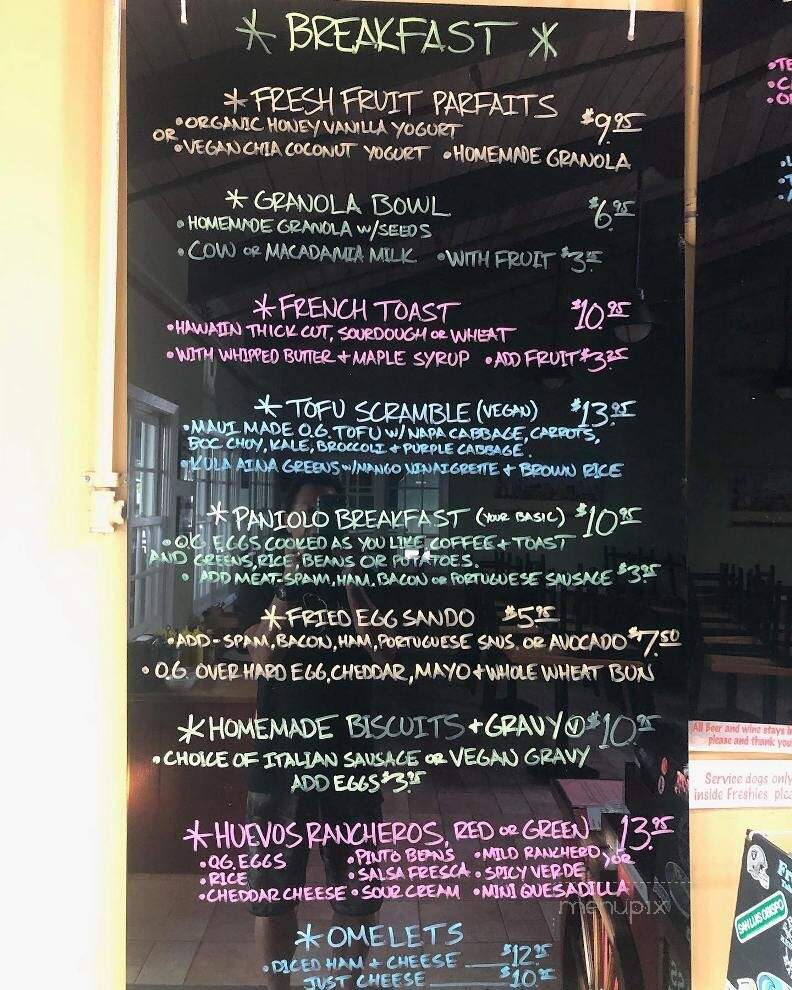 * BREAKFAST *
* FRESH FRUIT PARFAITS $9.95
• ORGANIC HONEY VANILLA YOGURT
OR
• VEGAN CHIA COCONUT YOGURT • HOMEMADE GRANOLA
* GRANOLA BOWL $6.95
• HOMEMADE GRANOLA W/SEEDS
• COW OR MACADAMIA MILK • WITH FRUIT
* FRENCH TOAST $10.95
• HAWAIIN THICK CUT, SOURDOUGH OR WHEAT
• WITH WHIPPED BUTTER + MAPLE SYRUP • ADD FRUIT $3.25
* TOFU SCRAMBLE (VEGAN) $13.95
• MAUI MADE O.G. TOFU W/ NAPA CABBAGE, CARROTS,
BOC CHOY, KALE, BROCCOLI + PURPLE CABBAGE.
• KULA AINA GREENS W/MANGO VINAIGRETTE + BROWN RICE
* PANIOLO BREAKFAST (YOUR BASIC) $10.95
• O.G. EGGS COOKED AS YOU LIKE, COFFEE + TOAST
AND GREENS, RICE, BEANS OR POTATOES.
• ADD MEAT-SPAM, HAM, BACON OR PORTUGUESE SAUSAGE $3.95
* FRIED EGG SANDO $5.95
• ADD - SPAM, BACON, HAM, PORTUGUESE SAUS. OR AVOCADO $7.50
• O.G. OVER HARD EGG, CHEDDAR, MAYO + WHOLE WHEAT BUN
* HOMEMADE BISCUITS + GRAVY Ⓥ $10.95
• CHOICE OF ITALIAN SAUSAGE OR VEGAN GRAVY
ADD EGGS $3.95
* HUEVOS RANCHEROS, RED OR GREEN 13.95
• O.G. EGGS • PINTO BEANS • MILD RANCHERO OR
• RICE • SALSA FRESCA • SPICY VERDE
• CHEDDAR CHEESE • SOUR CREAM • MINI QUESADILLA
menupix
* OMELETS
• DICED HAM + CHEESE $12.95
JUST CHEESE $10.95
All Beer and wine stays in
please and thank you
Service dogs only
inside Freshies plea
SAN LUIS OBISPO